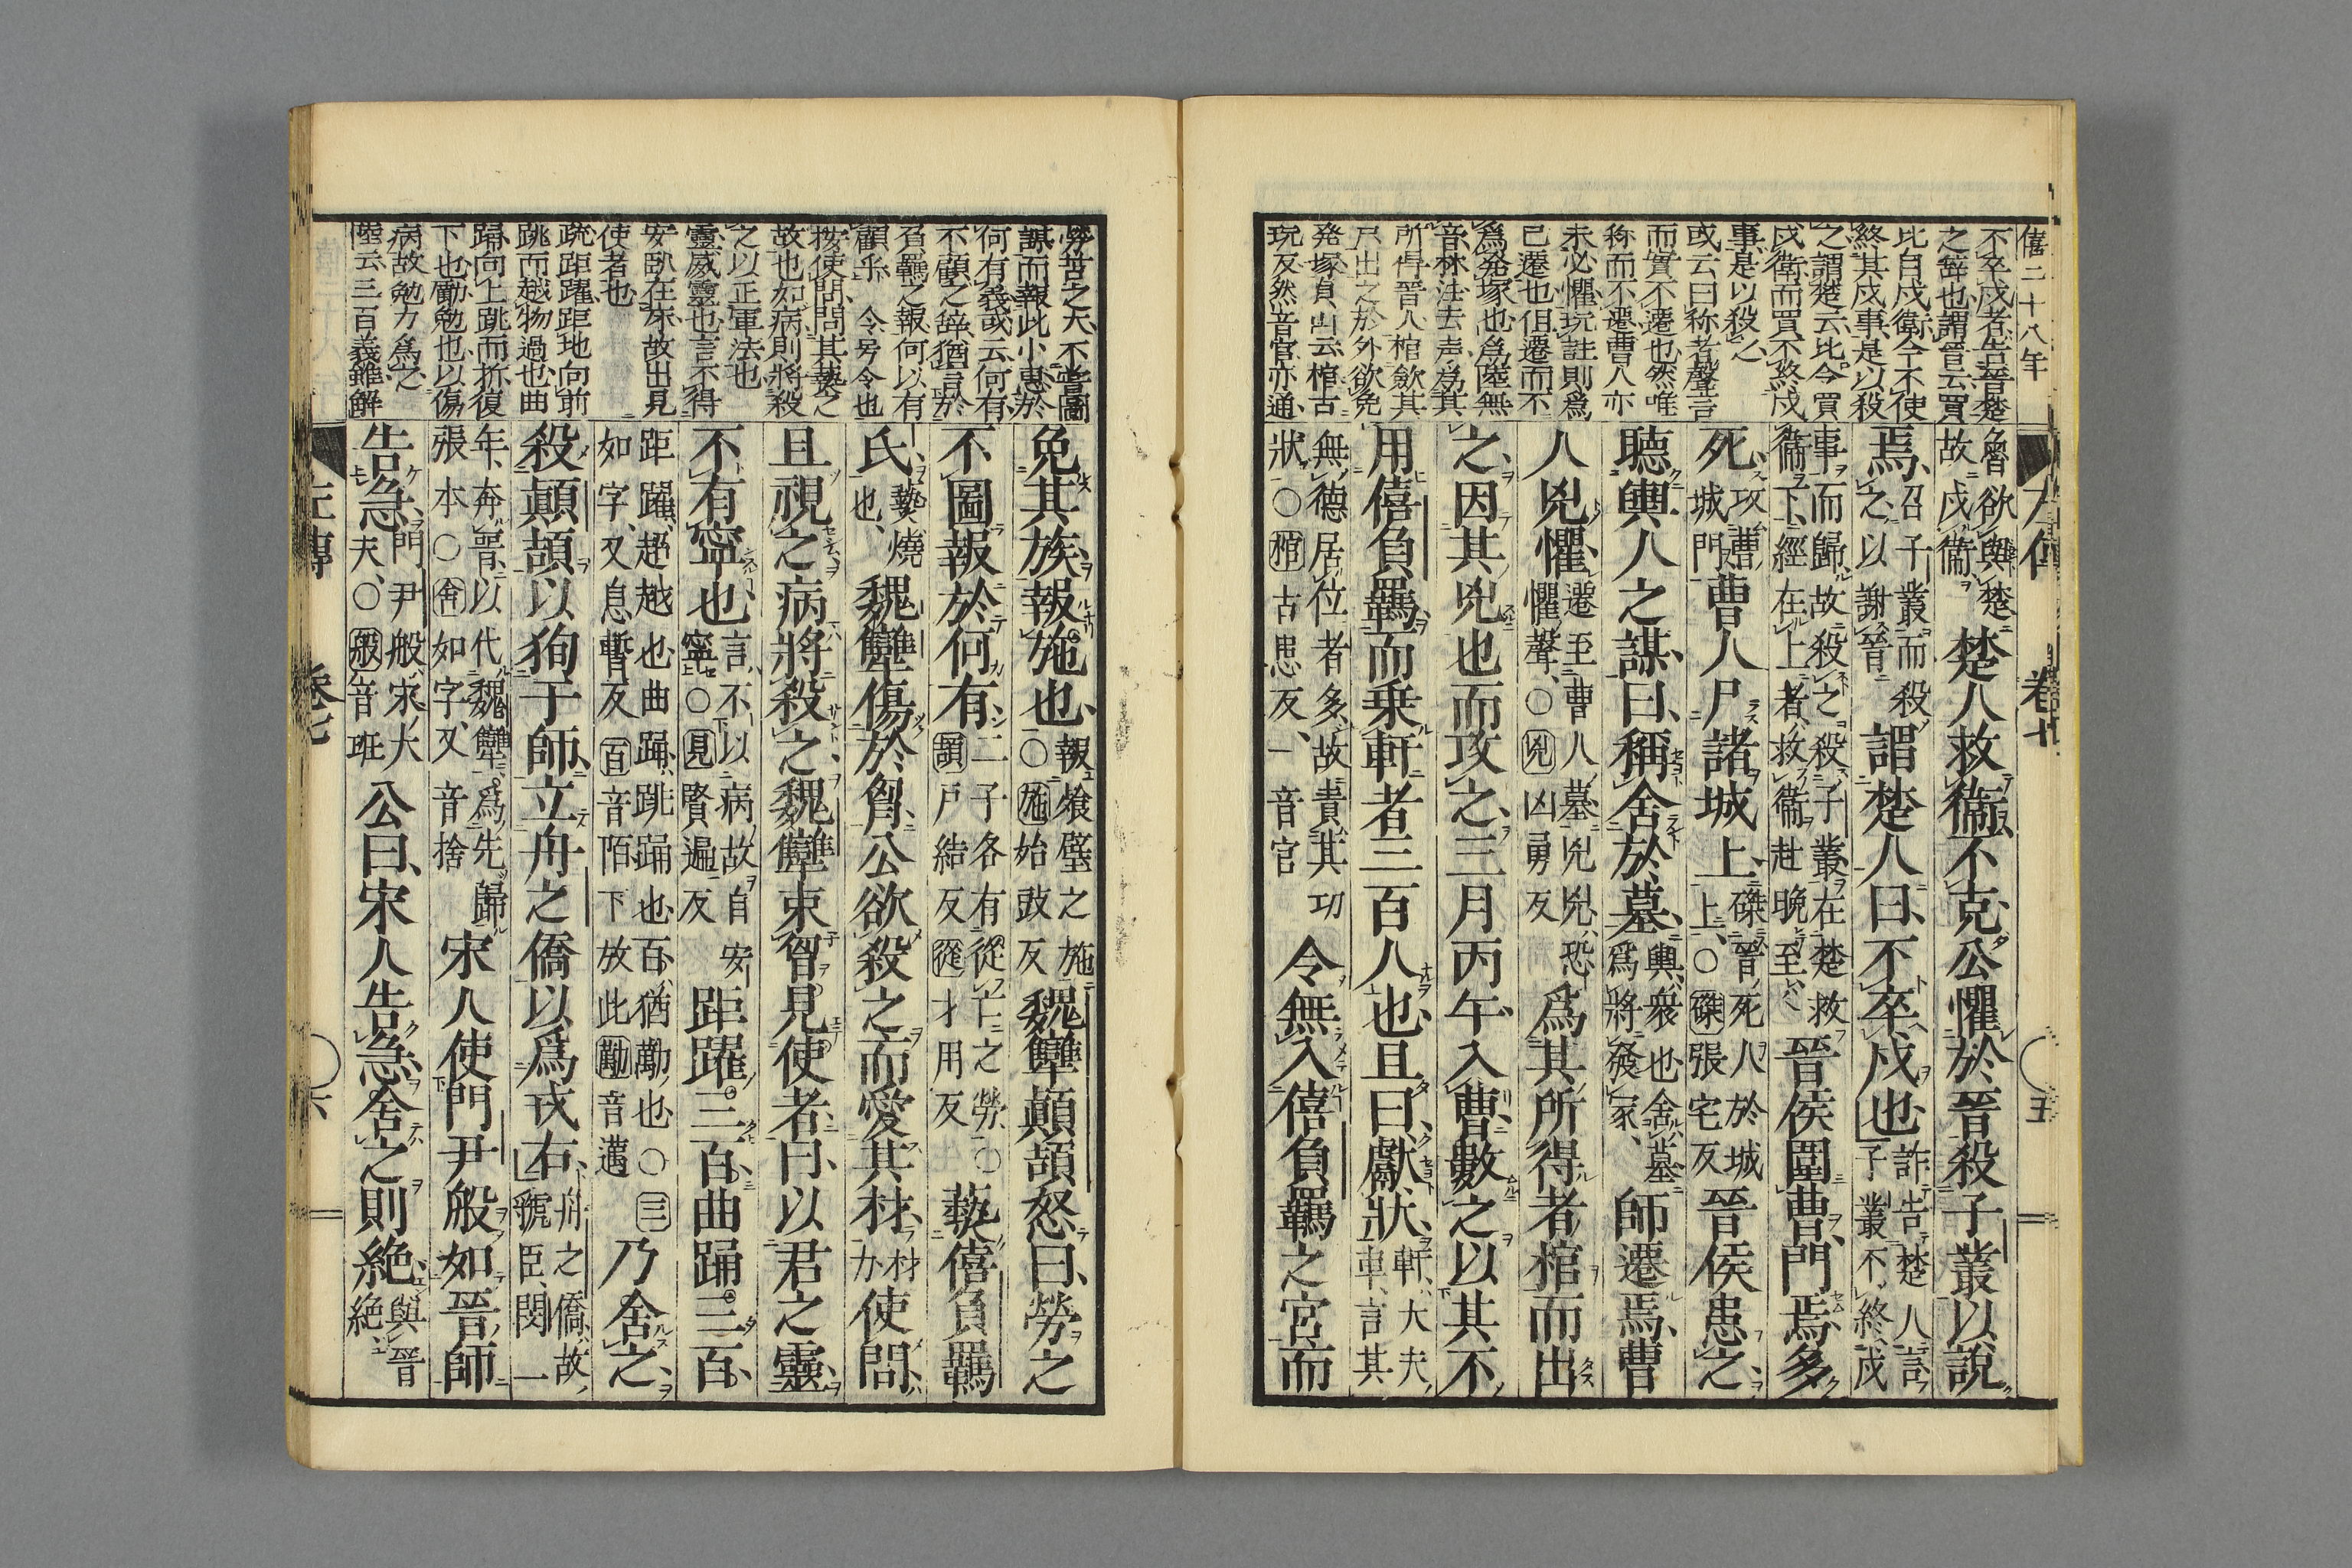 僖二十八年
不卒戍者告晉楚
之辞也謂晉云買
比自戍衛今不使
終其戍事是以殺
之謂楚云比今買
戍衛而買不終戍
事是以殺之
或云曰称者聲言
而實不遷也然唯
称而不遷曹人亦
未必懼玩註則爲
已遷也但遷而不
爲発塚也爲陸無
音林注去声爲其
所得晉人棺歛其
尸出之於外欲免
発塚貞山云棺古
玩反然音官亦通
魯欲與楚
故戍衛
楚人救衞不克公懼於晉殺子叢以說
焉
召子叢而殺
之以謝晉
謂楚人曰不卒戍也
詐告楚人言
子叢不終戍
事而歸故殺之殺子叢在楚救
衞下經在上者救衞赴晚至
晉侯圍曹門焉多
死
攻曹
城門
曹人尸諸城上
磔晉死人於城
上○磔張宅反
晉侯患之
聽輿人之謀曰稱舍於墓
輿衆也舍墓
爲將發冢
師遷焉曹
人兇懼
遷至曹人墓兇兇恐
懼聲○兇凶勇反
爲其所得者棺而出
之因其兇也而攻之三月丙午入曹數之以其不
用僖負羈而乗軒者三百人也且曰獻狀
軒大夫
車言其
無德居位者多故責其功
狀○棺古患反一音官
令無入僖負羈之宮而
左傳 卷七 五
勞苦之大不嘗圖
謀而報此小惠於
何有義或云何有
不顧之辞猶言於
負羈之報何以有
顧乎 令号令也
按使問問其藝之
故也如病則將殺
之以正軍法也
靈威靈也言不得
安臥在床故出見
使者也
疏距躍距地向前
跳而越物過也曲
踊向上跳而折復
下也勵勉也以傷
病故勉力爲之
陸云三百義難解
免其族報施也
報飧璧之施
○施始豉反
魏犨顛頡怒曰勞之
不圖報於何有
二子各有從亡之勞○
頡戶結反從才用反
爇僖負羈
氏
爇燒
也
魏犨傷於胷公欲殺之而愛其材
材
力
使問
且視之病將殺之魏犨束胷見使者曰以君之靈
不有寧也
言不以病故自安
寧○見賢遍反
距躍三百曲踊三百
距躍超越也曲踊跳踊也百猶勱也○三
如字又息暫反百音陌下放此勱音邁
乃舍之
殺顛頡以狥于師立舟之僑以爲戎右
舟之僑故
虢臣閔一
年奔晉以代魏犨爲先歸
張本○舍如字又音捨
宋人使門尹般如晉師
告急
門尹般宋大
夫○般音班
公曰宋人告急舍之則絶
與晉
絶
左傳 卷七 六